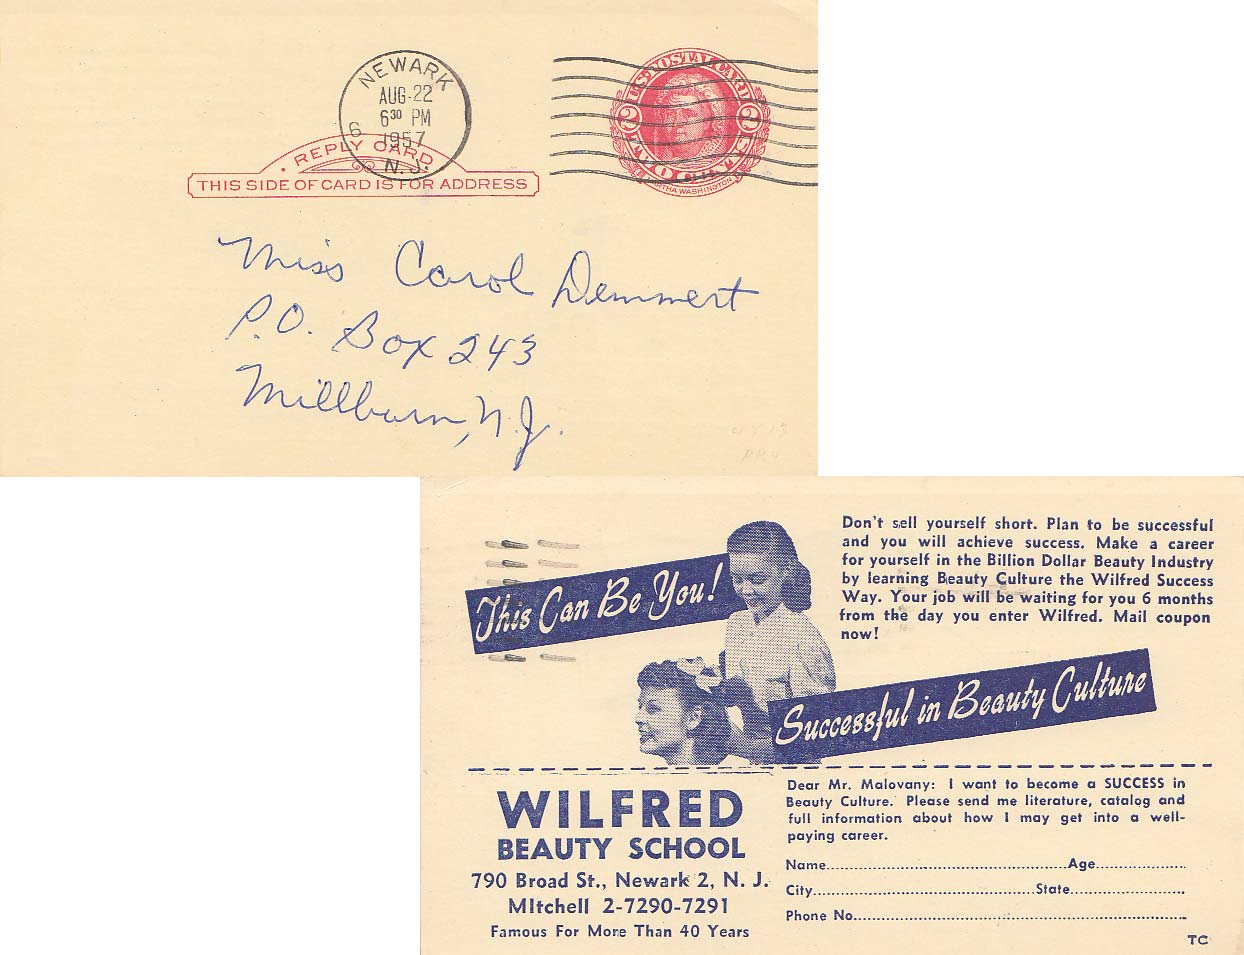 NEWARK
AUG-22
6 30 PM
1957
N.J.
6
REPLY CARD
THIS SIDE OF CARD IS FOR ADDRESS
U.S. POSTAL CARD
2 2
MARTHA WASHINGTON
Miss Carol Demmert
P.O. Box 243
Millburn, N.J.
PR4
This Can Be You!
Don't sell yourself short. Plan to be successful
and you will achieve success. Make a career
for yourself in the Billion Dollar Beauty Industry
by learning Beauty Culture the Wilfred Success
Way. Your job will be waiting for you 6 months
from the day you enter Wilfred. Mail coupon
now!
Successful in Beauty Culture
WILFRED
BEAUTY SCHOOL
790 Broad St., Newark 2, N. J.
MItchell 2-7290-7291
Famous For More Than 40 Years
Dear Mr. Malovany: I want to become a SUCCESS in
Beauty Culture. Please send me literature, catalog and
full information about how I may get into a well-
paying career.
Name Age
City State
Phone No.
TC